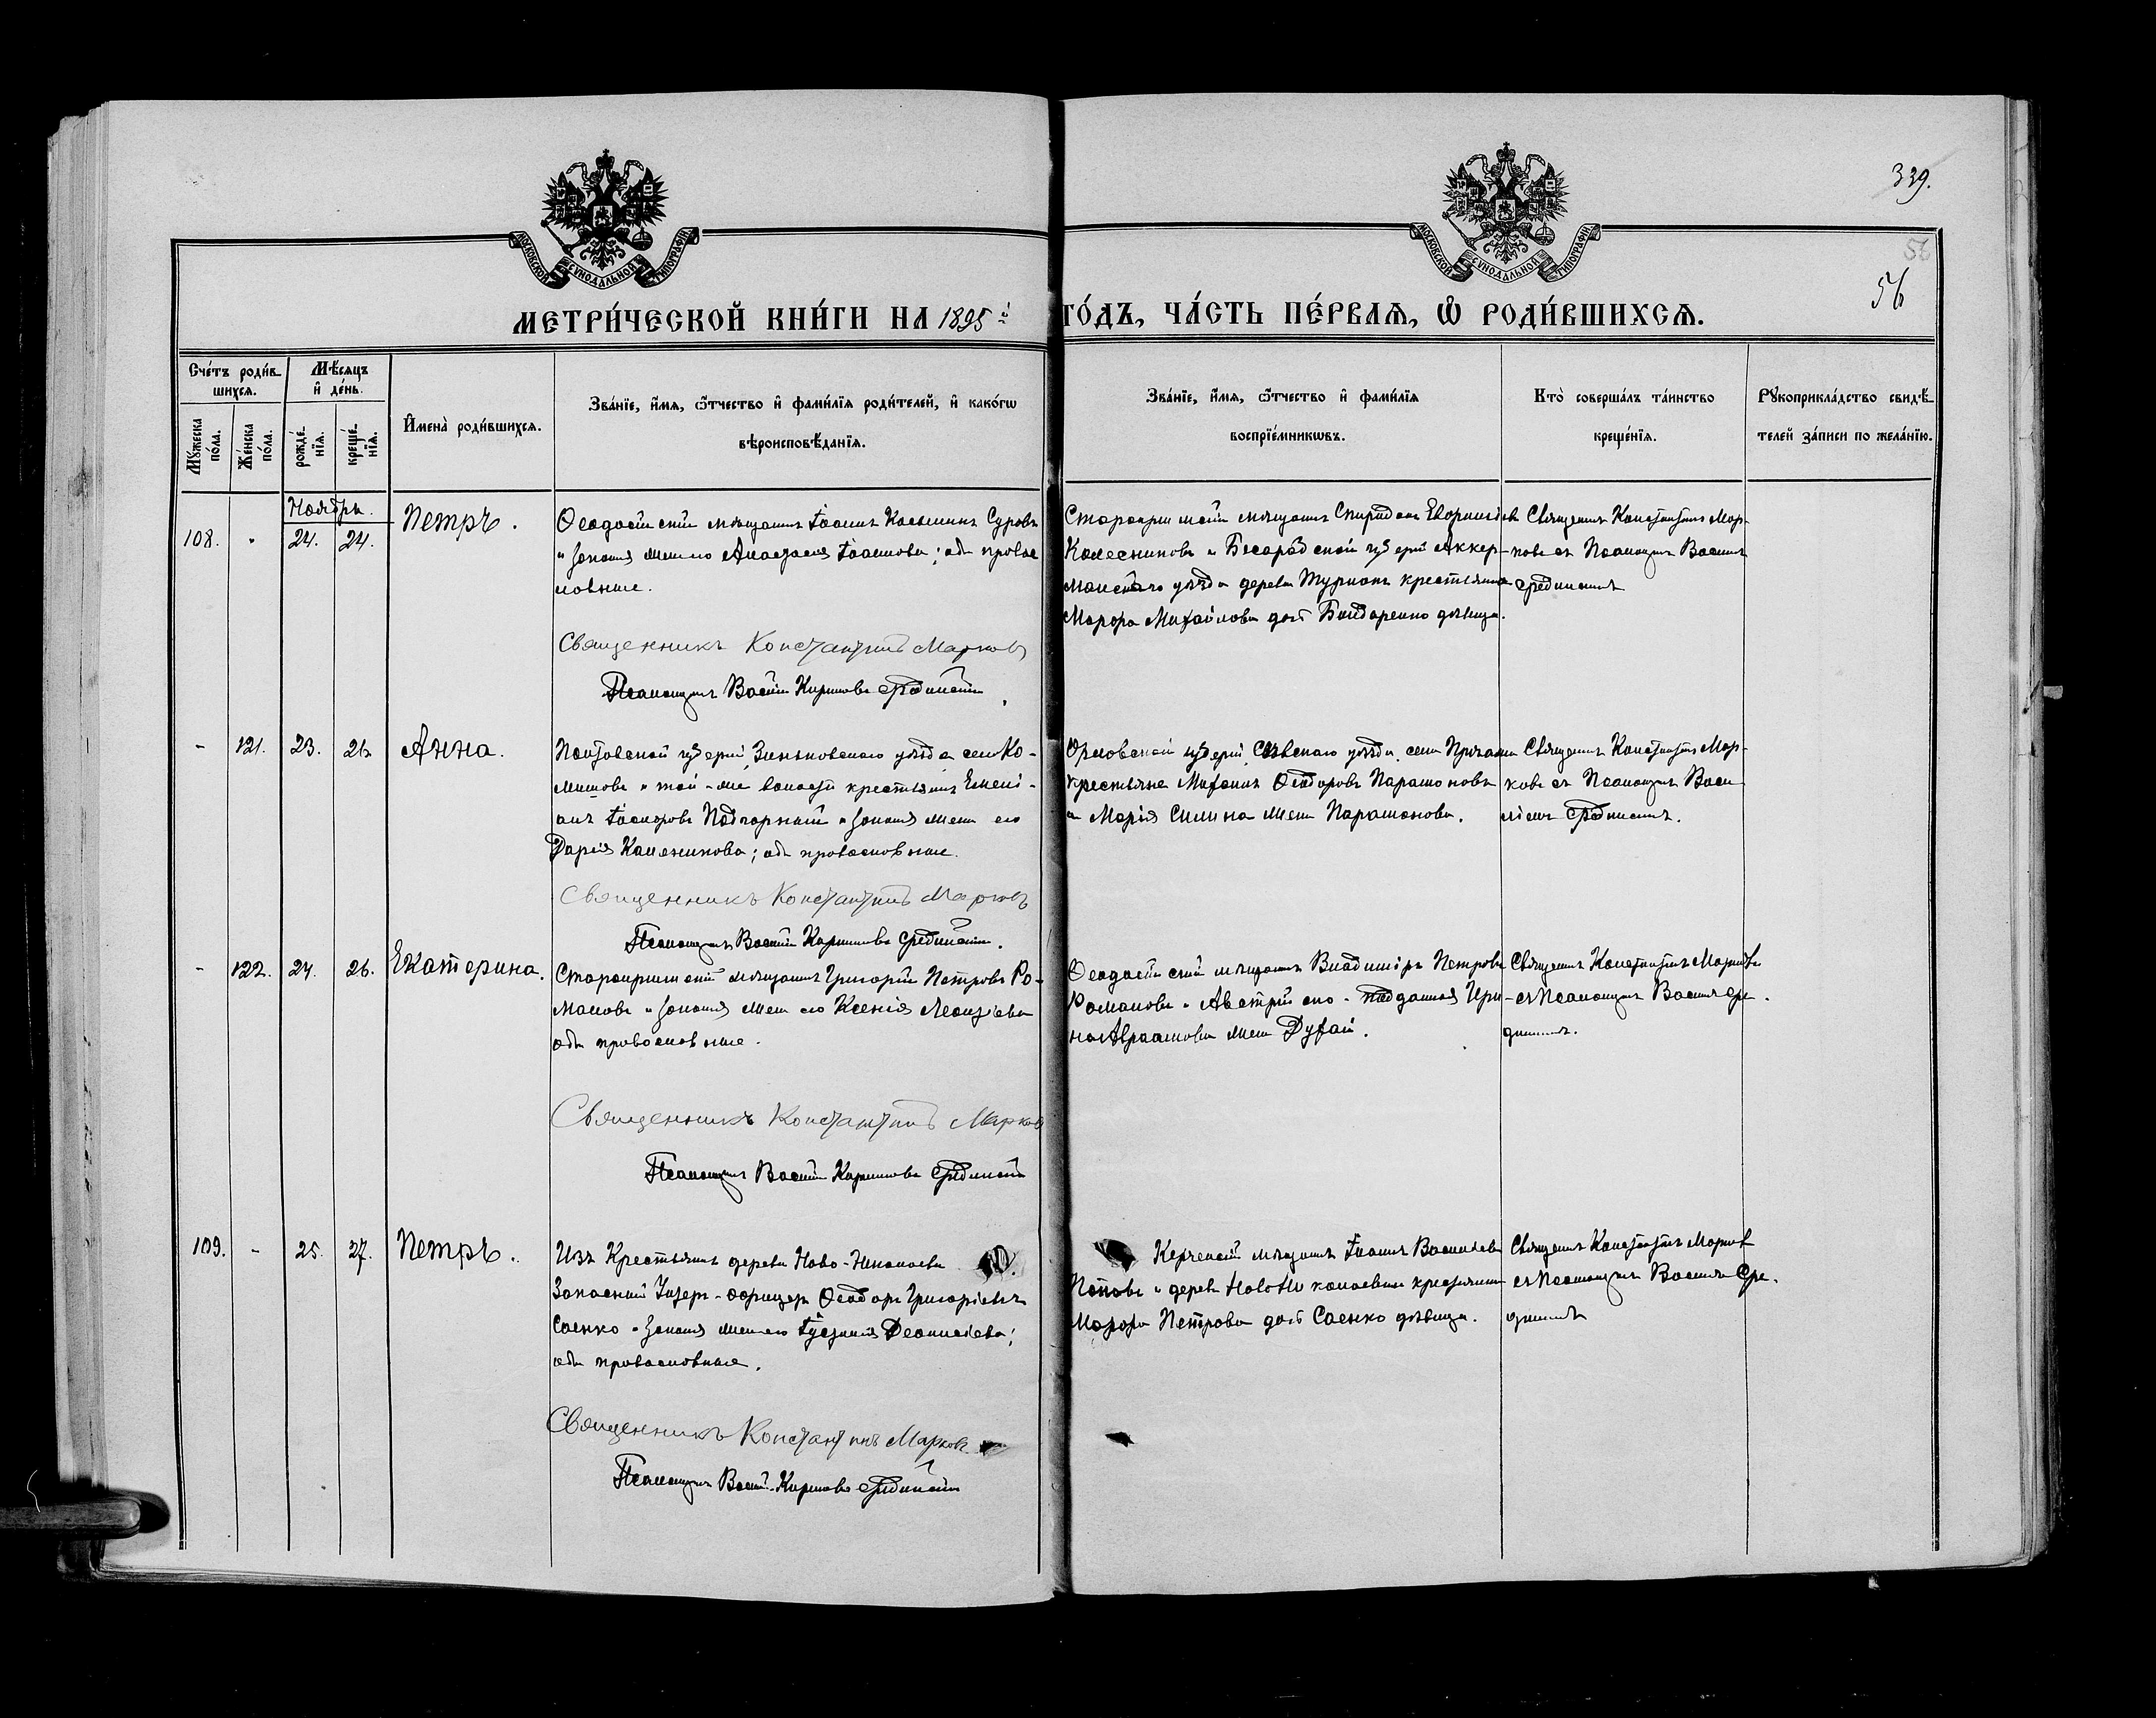 339.
56
56
МОСКОВСКОЙ СѴНОДАЛЬНОЙ ТИПОГРАФІИ
МОСКОВСКОЙ СѴНОДАЛЬНОЙ ТИПОГРАФІИ
МЕТРИ́ЧЕСКОЙ КНИ́ГИ НА 1895й ГО́ДЪ, ЧА́СТЬ ПЕ́РВАѦ, Ѡ РОДИ́ВШИХСѦ.
Сче́тъ роди́в-
шихсѧ.
Мꙋ́жеска по́ла.
Же́нска по́ла.
Мѣ́сѧцъ
и҆ де́нь.
рожде́-
нїѧ.
креще́-
нїѧ.
И҆мена̀ роди́вшихсѧ.
Зва́нїе, и҆́мѧ, ѻ҆́тчество и҆ фами́лїѧ роди́телей, и҆ како́гѡ
вѣроисповѣ́данїѧ.
Зва́нїе, и҆́мѧ, ѻ҆́тчество и҆ фами́лїѧ
воспрїе́мникѡвъ.
Кто̀ соверша́лъ та́инство
креще́нїѧ.
Рꙋкоприкла́дство свидѣ́-
телей за́писи по жела́нїю.
Ноябрь.
108.
"
24.
24.
Петръ.
Ѳеодосійскій мѣщанинъ Іоаннъ Косьминъ Суровъ
и законная жена его Анастасія Іоаннова; оба правос
лавные.
Священникъ Константинъ Марковъ
Псаломщикъ Василій Кирилловъ Срединскій
Старокрымскій мѣщанинъ Спиридонъ
Колесниковъ и Бесарабской губерніи Аккер-
манскаго уѣзда деревни крестьянка
Михайлова дочь Бондаренко дѣвица.
Священникъ Константинъ Мар-
ковъ съ Псаломщикъ Василій
Срединскимъ
-
121.
23.
26
Анна.
Полтовской губерніи, Зиньковскаго уѣзда села Ко-
мишовъ и той-же волости крестьянинъ Емелі-
анъ Подгорный и законная жена его
Дарія; оба православные.
Священникъ Константинъ Марковъ
Псаломщикъ Василій Кирилловъ Срединскій.
Орловской губерніи, Сѣвскаго уѣзда, села
крестьяне Михаилъ Ѳеодоровъ Парамоновъ
и Марія Силина жена Парамонова.
Священникъ Константинъ Мар-
ковъ съ Псаломщикъ Васи-
ліемъ Срединскимъ.
-
122.
24.
26.
Екатерина.
Старокрымскій мѣщанинъ Григорій Петровъ Ро-
мановъ и законная жена его Ксенія Леонтіева
оба православные.
Священникъ Константинъ Марковъ
Псаломщикъ Василій Кирилловъ Срединскій
Ѳеодосійскій мѣщанинъ Владиміръ Петровъ
Романовъ и Австрійско-подданная Ири-
на Авраамова жена Духай.
Священникъ Константинъ Марковъ
съ Псаломщикъ Василій Сре-
109.
-
25.
27.
Петръ.
Изъ Крестьянъ деревни Ново-Николаевки
Запасный Унтеръ-офицеръ Ѳеодоръ Григоріевъ
Саенко и законная жена его Діонисіева;
оба православные.
Священникъ Константинъ Марковъ
Псаломщикъ Василій Кирилловъ Срединскій
Керченскій мѣщанинъ Іоаннъ Васильевъ
Поповъ и деревни Ново-Николаевки крестьянка
Петрова дочь Саенко дѣвица.
Священникъ Константинъ Марковъ
съ Псаломщикъ Василій Сре-